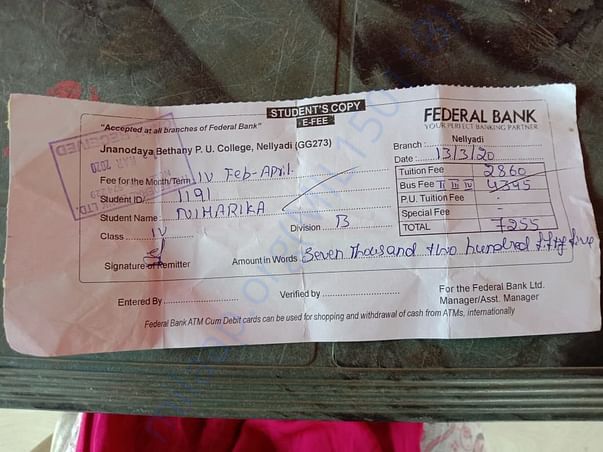 STUDENT'S COPY
E-FEE
"Accepted at all branches of Federal Bank"
FEDERAL BANK
YOUR PERFECT BANKING PARTNER
Jnanodaya Bethany P. U. College, Nellyadi (GG273)
Branch : Nellyadi
Date : 13/3/20
Fee for the Month/Term IV Feb-April
Tuition Fee 2860
Student ID 1191
Bus Fee II III IV 4395
Student Name NIHARIKA
P.U. Tuition Fee -
Special Fee -
Class IV Division B
TOTAL 7255
Signature of Remitter
Amount in Words Seven Thousand two hundred fifty five
Entered By
Verified by
For the Federal Bank Ltd.
Manager/Asst. Manager
Federal Bank ATM Cum Debit cards can be used for shopping and withdrawal of cash from ATMs, internationally
RECEIVED
MAR 2020
LTD.